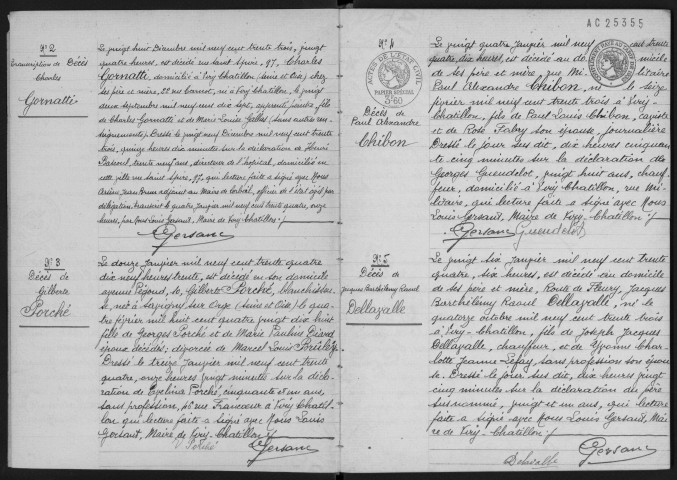 N° 2
Transcription de Décès
Charles
Gornatti
Le vingt huit Décembre mil neuf cent trente trois, vingt
quatre heures, est décédé rue Saint Spire, 97, Charles
Gornatti, domicilié à Viry Chatillon (Seine et Oise) chez
ses père et mère, rue Carnot, né à Viry Chatillon, le vingt
deux Septembre mil neuf cent dix sept, apprenti, fils
de Charles Gornatti et de Marie Louise (sans autres ren-
seignements). Dressé le vingt neuf Décembre mil neuf cent trente
trois, quinze heures dix minutes sur la déclaration de Henri
trente neuf ans, directeur de l'hôpital, domicilié en
cette ville rue Saint Spire, 97, qui lecture faite a signé avec Nous
adjoint au Maire de Corbeil, officier de l'état civil par
délégation. Transcrit le quatre Janvier mil neuf cent trente quatre, onze
heures, par Nous Louis Gersant, Maire de Viry-Chatillon ./.
Gersant
N° 3
Décès de
Gilberte
Porché
Le douze Janvier mil neuf cent trente quatre
dix neuf heures trente, est décédée en son domicile
avenue 10, Gilberte Porché, blanchisseu-
se, née à Savigny sur Orge (Seine et Oise) le qua-
tre février mil huit cent quatre vingt dix huit
fille de Georges Porché et de Marie Pauline Piard
époux décédés; divorcée de Marcel Louis
Dressé le treize Janvier mil neuf cent trente
quatre, onze heures vingt minutes sur la décla-
ration de Evelina Porché, cinquante et un ans,
sans profession, rue Francoeur à Viry Chatil-
lon, qui lecture faite a signé avec Nous Louis
Gersant, Maire de Viry-Chatillon ./.
Porché
Gersant
AC 25355
N° 4
ACTES DE L'ETAT CIVIL
PAPIER SPECIAL
3F60
Décès de
Paul Alexandre
Chibon
Le vingt quatre Janvier mil neuf cent trente
quatre, dix heures, est décédé au domicile
de ses père et mère, rue Militaire
Paul Alexandre Chibon, né le seize
février mil neuf cent trente trois à Viry-
Chatillon, fils de Paul Louis Chibon, caviste
et de Rose Fabry son épouse, journalière
Dressé le jour sus dit, dix heures cinquan-
te cinq minutes sur la déclaration de
Georges Gueudelot, vingt huit ans, chauf-
feur, domicilié à Viry Chatillon, rue Mi-
litaire, qui lecture faite a signé avec Nous
Louis Gersant, Maire de Viry-Chatillon ./.
Gersant Gueudelot
N° 5
Décès de
Jacques Barthélémy Raoul
Dellavalle
Le vingt six Janvier mil neuf cent trente
quatre, six heures, est décédé au domicile
de ses père et mère, Route de Fleury, Jacques
Barthélémy Raoul Dellavalle, né le
quatorze octobre mil neuf cent trente trois
à Viry-Chatillon, fils de Joseph Jacques
Dellavalle, chauffeur, et de Yvonne Char-
lotte Jeanne Lefay, sans profession son épou-
se. Dressé le jour sus dit, dix heures vingt
cinq minutes sur la déclaration du père
sus nommé, vingt et un ans, qui lecture
faite a signé avec Nous Louis Gersant, Mai-
re de Viry-Chatillon ./.
Delavalle
Gersant